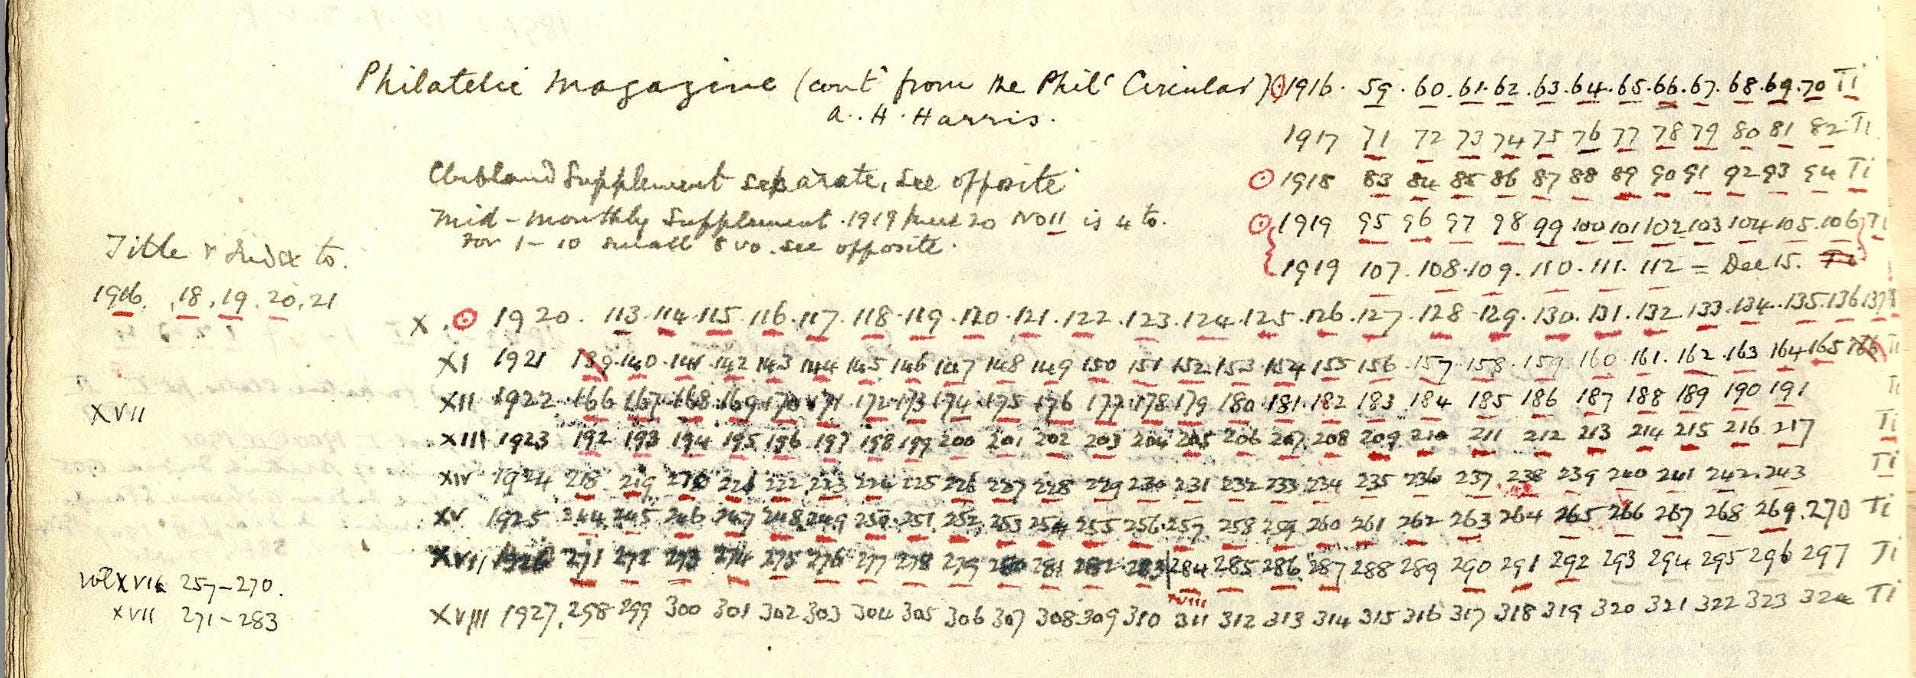 Philatelic Magazine (cont from the Phil Circular) 1916. 59. 60. 61. 62. 63. 64. 65. 66. 67. 68. 69. 70 Ti
A. H. Harris.
1917 71 72 73 74 75 76 77 78 79 80 81 82 Ti
Clubland Supplement separate, see opposite
1918 83 84 85 86 87 88 89 90 91 92 93 94 Ti
Mid-monthly Supplement. 1919 20 No 11 is 4 to.
1919 95 96 97 98 99 100 101 102 103 104 105. 106 Ti
For 1-10 small 8 vo. see opposite.
1919 107. 108. 109. 110. 111. 112 = Dec 15.
Title & Index to.
1916. 18. 19. 20. 21
X. 1920. 113. 114. 115. 116. 117. 118. 119. 120. 121. 122. 123. 124. 125. 126. 127. 128. 129. 130. 131. 132. 133. 134. 135. 136 137
XI 1921 139. 140. 141. 142 143 144 145 146 147 148 149 150 151 152 153 154 155 156 157 158 159 160 161. 162. 163 164 165 166 Ti
XVII
XII 1922 166 167 168 169 170 171 172 173 174 175 176 177 178 179 180 181. 182 183 184 185 186 187 188 189 190 191 Ti
XIII 1923 192 193 194 195 196 197 198 199 200 201 202 203 204 205 206 207 208 209 210 211 212 213 214 215 216 217 Ti
XIV 1924 218 219 220 221 222 223 224 225 226 227 228 229 230 231 232 233 234 235 236 237 238 239 240 241 242. 243 Ti
XV 1925 244 245 246 247 248 249 250 251 252 253 254 255 256. 257 258 259 260 261 262 263 264 265 266 267 268 269. 270 Ti
XVII 1926 271 272 273 274 275 276 277 278 279 280 281 282 283 284 285 286 287 288 289 290 291 292 293 294 295 296 297 Ti
XVIII
Vol XVII 257-270.
XVII 271-283
XVIII 1927. 298 299 300 301 302 303 304 305 306 307 308 309 310 311 312 313 314 315 316 317 318 319 320 321 322 323 324 Ti